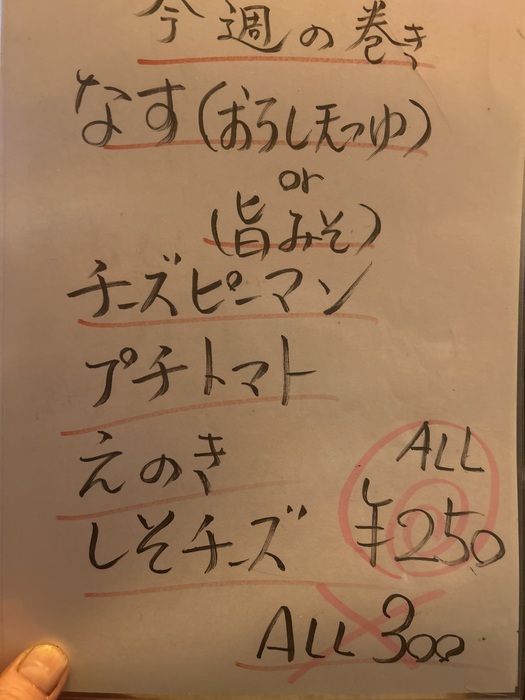 今週の巻き
なす(おろし天つゆ)
or
(旨みそ)
チーズピーマン
プチトマト
えのき
しそチーズ
ALL
¥250
ALL 300